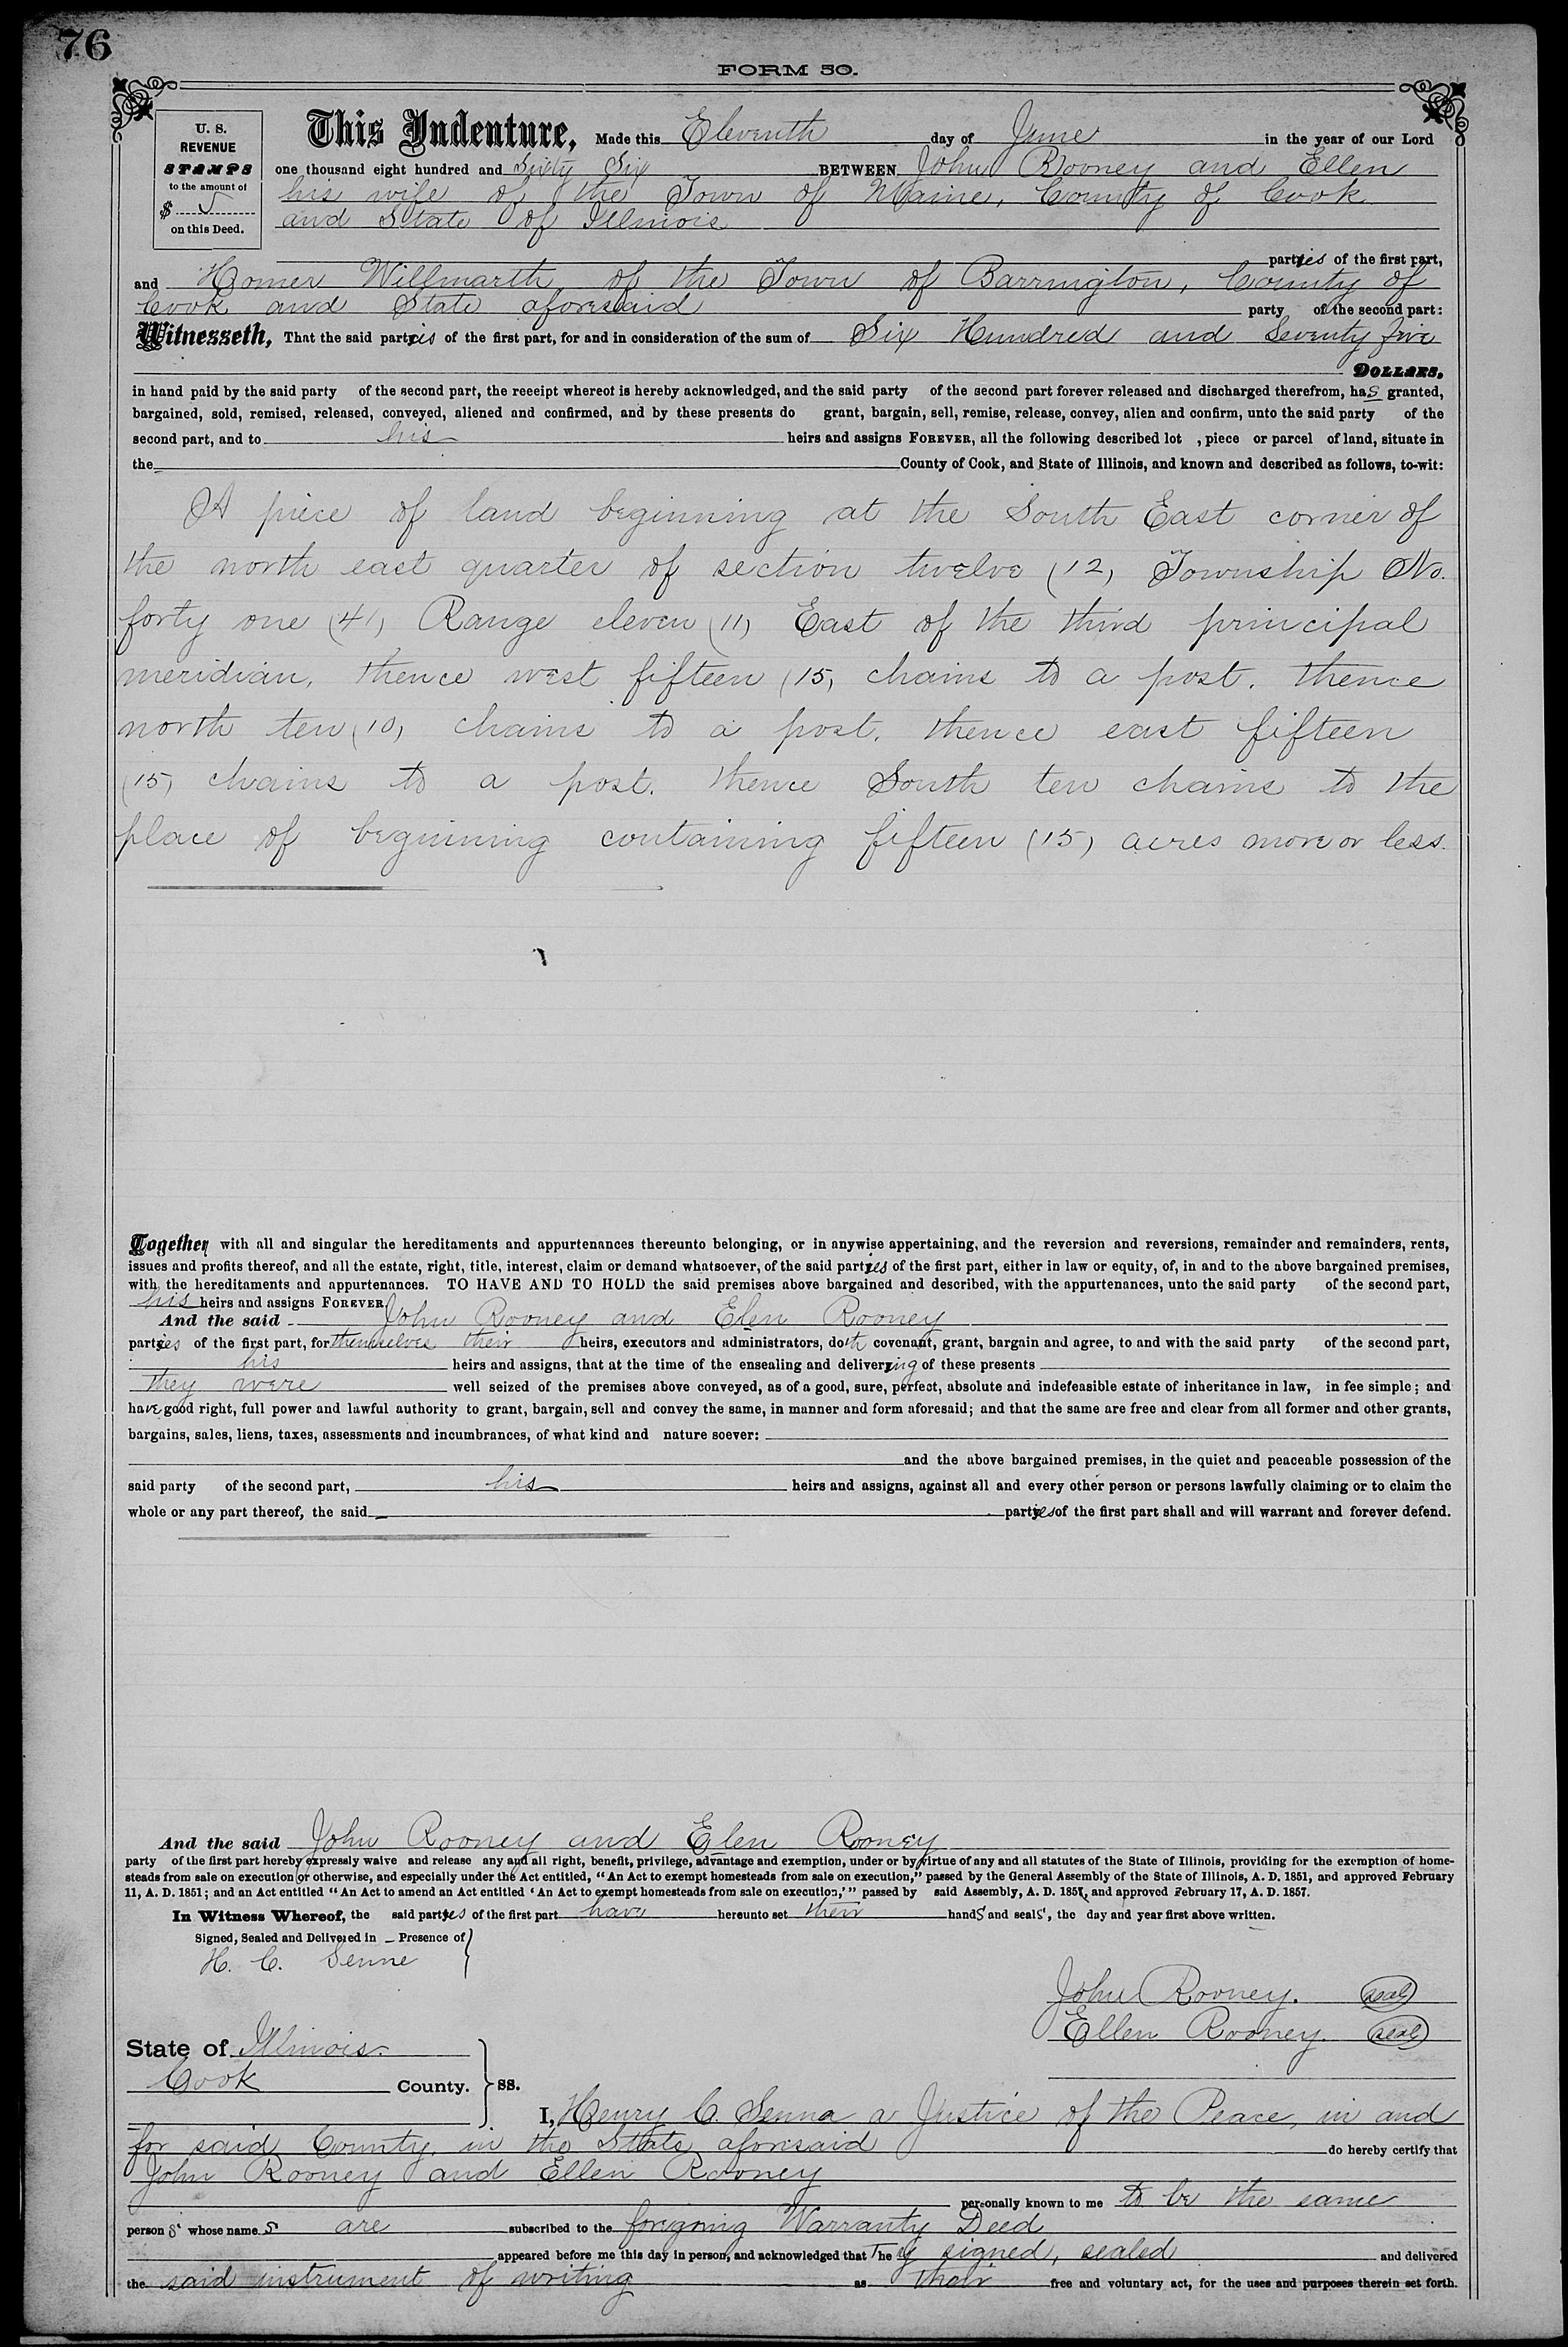 76
FORM 50.
U. S.
REVENUE
STAMPS
to the amount of
$ 5
on this Deed.
This Indenture, Made this Eleventh day of June in the year of our Lord
one thousand eight hundred and Sixty Six BETWEEN John Rooney and Ellen
his wife of the Town of Maine, County of Cook
and State of Illinois
parties of the first part,
and Homer Willmarth of the Town of Barrington, County of
Cook and State aforesaid party of the second part:
Witnesseth, That the said parties of the first part, for and in consideration of the sum of Six Hundred and Seventy five
DOLLARS,
in hand paid by the said party of the second part, the receipt whereof is hereby acknowledged, and the said party of the second part forever released and discharged therefrom, has granted,
bargained, sold, remised, released, conveyed, aliened and confirmed, and by these presents do grant, bargain, sell, remise, release, convey, alien and confirm, unto the said party of the
second part, and to his heirs and assigns FOREVER, all the following described lot , piece or parcel of land, situate in
the County of Cook, and State of Illinois, and known and described as follows, to-wit:
A piece of land beginning at the South East corner of
the north east quarter of section twelve (12) Township No.
forty one (41) Range eleven (11) East of the third principal
meridian, thence west fifteen (15) chains to a post. thence
north ten (10) chains to a post. thence east fifteen
(15) chains to a post. thence South ten chains to the
place of beginning containing fifteen (15) acres more or less.
Together with all and singular the hereditaments and appurtenances thereunto belonging, or in anywise appertaining, and the reversion and reversions, remainder and remainders, rents,
issues and profits thereof, and all the estate, right, title, interest, claim or demand whatsoever, of the said parties of the first part, either in law or equity, of, in and to the above bargained premises,
with the hereditaments and appurtenances. TO HAVE AND TO HOLD the said premises above bargained and described, with the appurtenances, unto the said party of the second part,
his heirs and assigns FOREVER.
And the said John Rooney and Elen Rooney
parties of the first part, for themselves their heirs, executors and administrators, doth covenant, grant, bargain and agree, to and with the said party of the second part,
his heirs and assigns, that at the time of the ensealing and delivering of these presents
they were well seized of the premises above conveyed, as of a good, sure, perfect, absolute and indefeasible estate of inheritance in law, in fee simple; and
have good right, full power and lawful authority to grant, bargain, sell and convey the same, in manner and form aforesaid; and that the same are free and clear from all former and other grants,
bargains, sales, liens, taxes, assessments and incumbrances, of what kind and nature soever:
and the above bargained premises, in the quiet and peaceable possession of the
said party of the second part, his heirs and assigns, against all and every other person or persons lawfully claiming or to claim the
whole or any part thereof, the said parties of the first part shall and will warrant and forever defend.
And the said John Rooney and Elen Rooney
party of the first part hereby expressly waive and release any and all right, benefit, privilege, advantage and exemption, under or by virtue of any and all statutes of the State of Illinois, providing for the exemption of home-
steads from sale on execution or otherwise, and especially under the Act entitled, "An Act to exempt homesteads from sale on execution," passed by the General Assembly of the State of Illinois, A. D. 1851, and approved February
11, A. D. 1851; and an Act entitled "An Act to amend an Act entitled 'An Act to exempt homesteads from sale on execution,'" passed by said Assembly, A. D. 1857, and approved February 17, A. D. 1857.
In Witness Whereof, the said parties of the first part have hereunto set their hands and seals, the day and year first above written.
Signed, Sealed and Delivered in Presence of
H. C. Senne
John Rooney. seal
Ellen Rooney. seal
State of Illinois
Cook County. ss.
I, Henry C. Senna a Justice of the Peace, in and
for said County, in the State aforesaid do hereby certify that
John Rooney and Ellen Rooney
personally known to me to be the same
person s whose name s are subscribed to the foregoing Warranty Deed
appeared before me this day in person, and acknowledged that They signed, sealed and delivered
the said instrument of writing as their free and voluntary act, for the uses and purposes therein set forth.